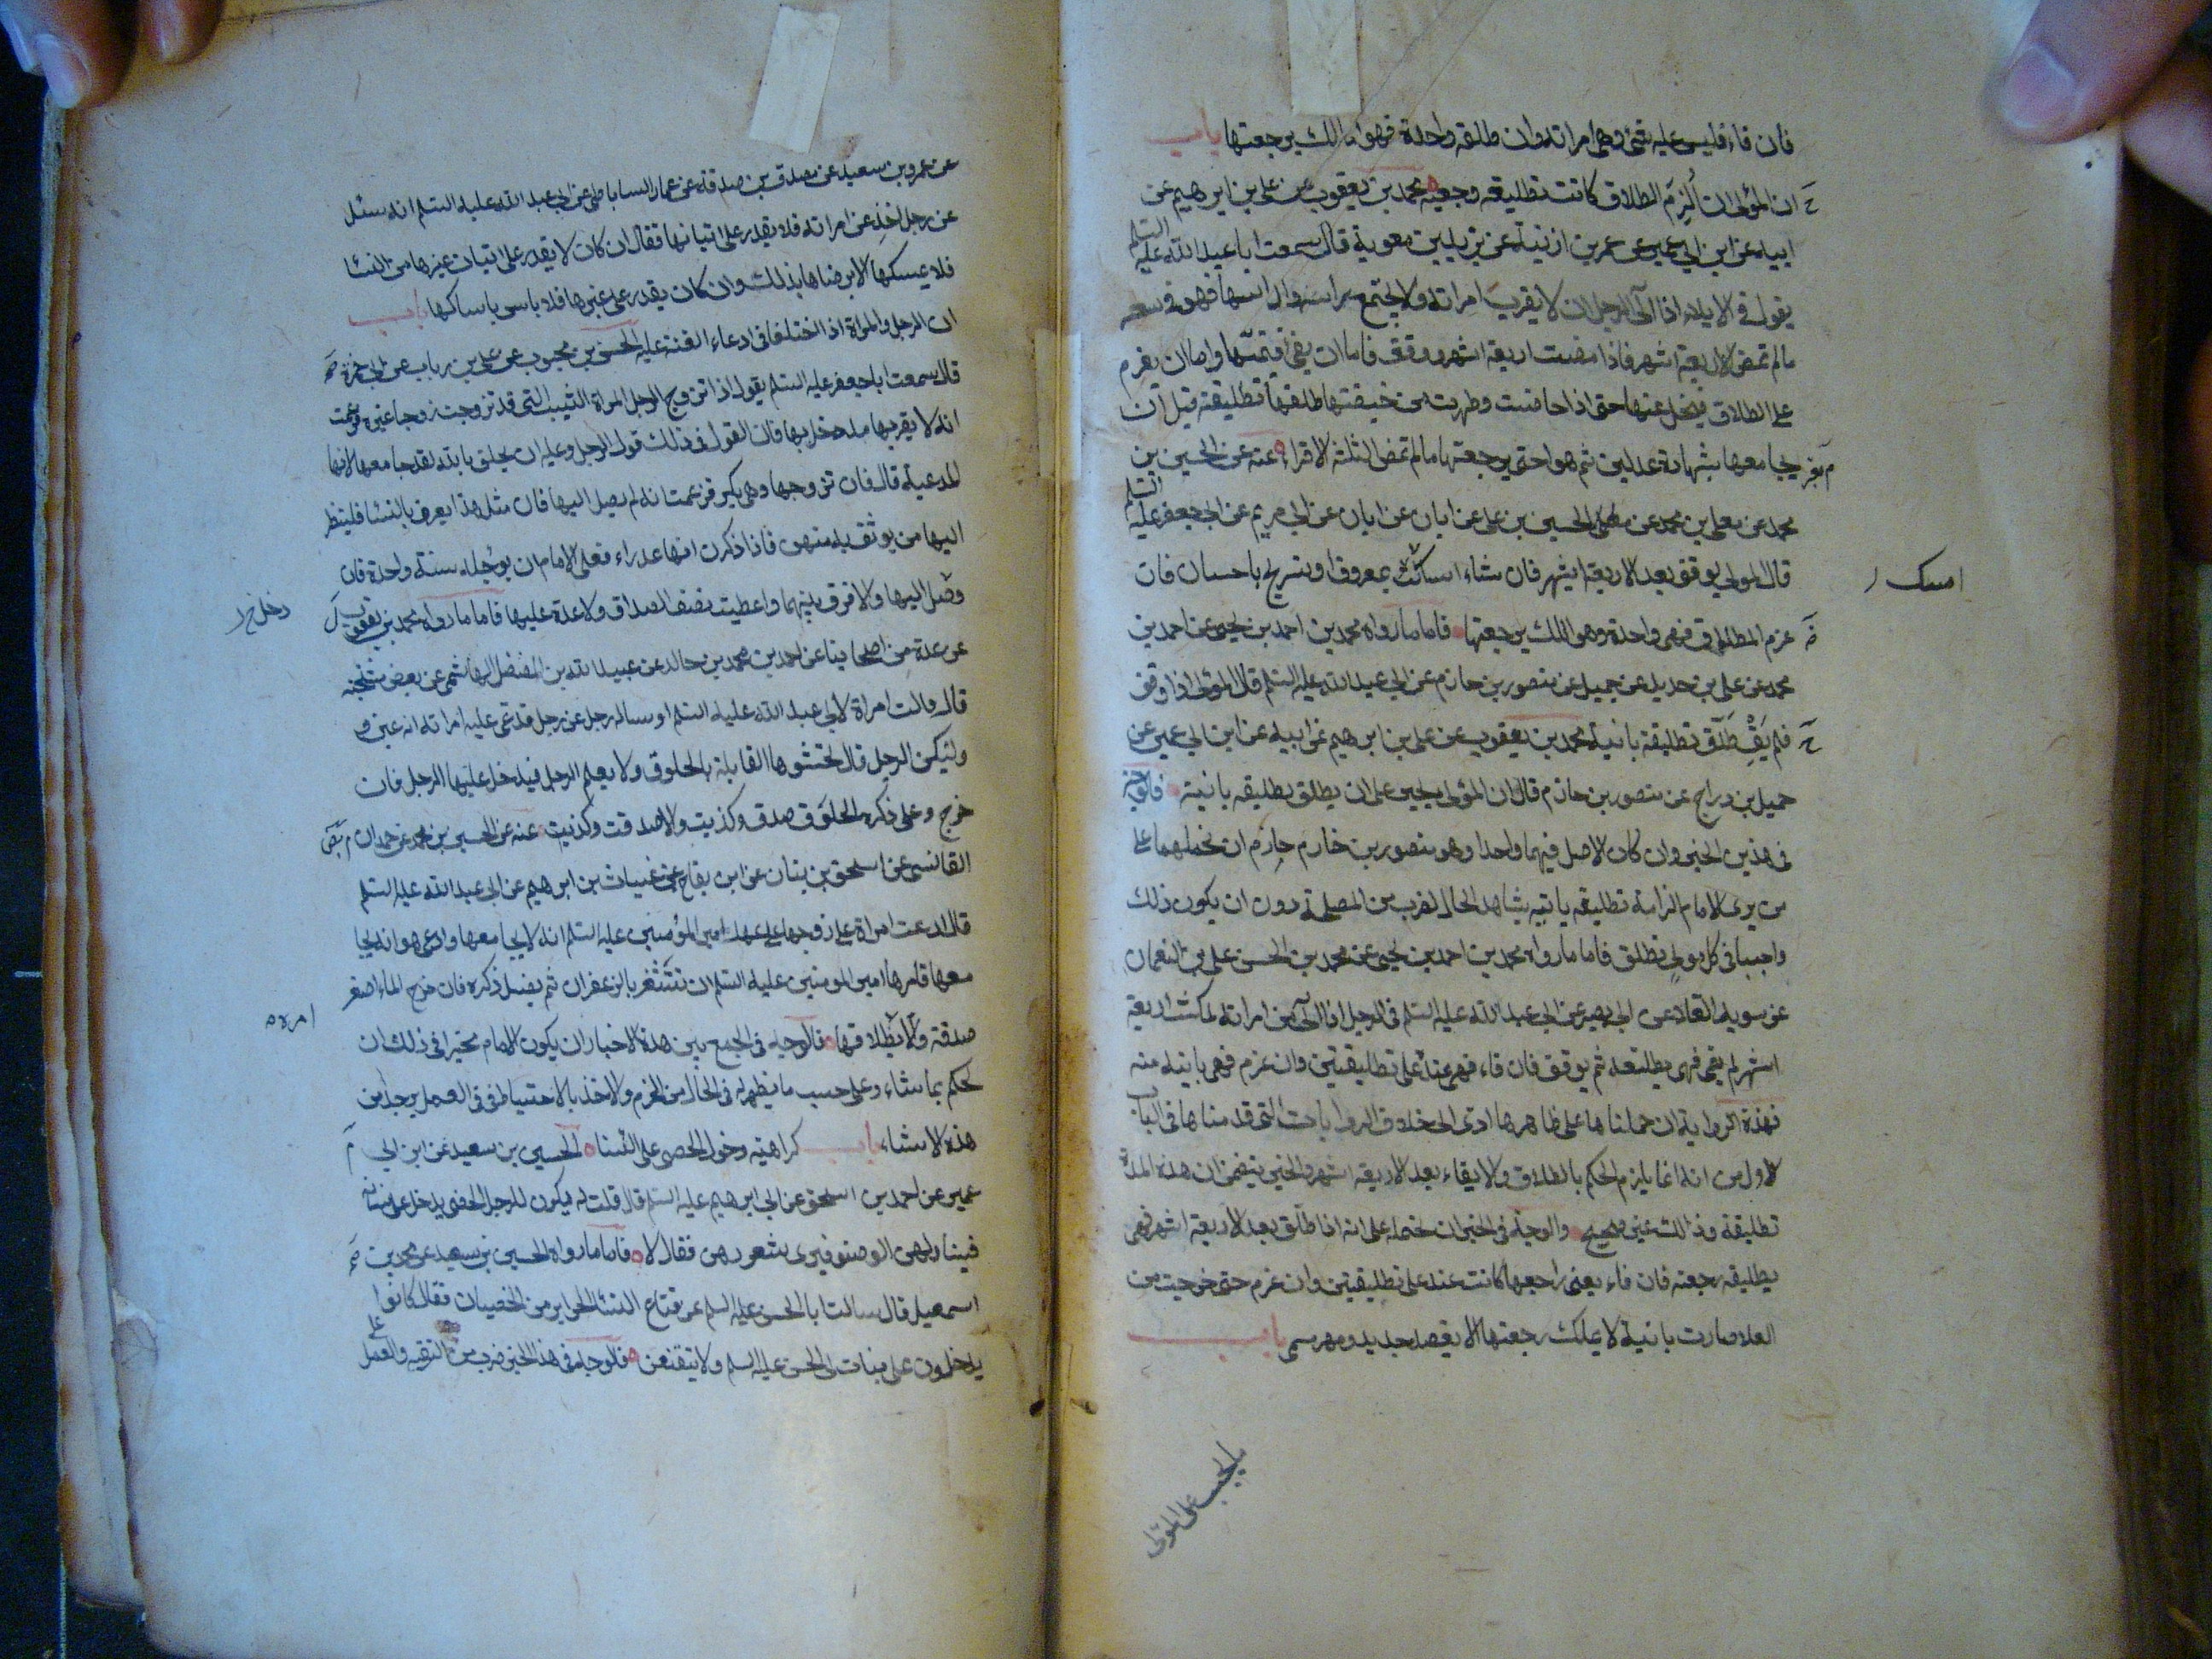 فان فاء فليس عليه شئ وهى امراته وان طلق واحدة فهو املك برجعتها باب
ان المؤلى ان اُلزِمَ الطلاق كانت تطليقه رجعيه محمد بن يعقوب عن على بن ابرهيم عن
ابيه عن ابن ابي عمير عن عمر بن اذنية عن بريد بن معوية قال سمعت ابا عبد الله عليه السلم
يقول فى الايلاء اذا آلى الرجل ان لا يقرب امراته ولا يجتمع براسه وراسها فهو فى سعه
مالم تمض الاربعة اشهر فاذا مضت اربعة اشهر ووقف فاما ان يفئ فيمسّها واما ان يعزم
على الطلاق فيخل عنها حتى اذا حاضت وطهرت من حيضتها طلقها تطليقة قبل ان
يجامعها بشهادة عدلين ثم هو احق برجعتها مالم تمض الثلثة الاقراء عنه عن الحسين بن
محمد عن معلى بن محمد عن الحسن بن على عن ابان عن ابى مريم عن ابى جعفر عليه السلم
قال المولى يوقف بعد الاربعة اشهر فان شاء امساك بمعروف او تسريح باحسان فان
امسك
عزم الطلاق فهى واحدة وهو املك برجعتها فاما ما رواه محمد بن احمد بن يحيى عن احمد بن
محمد عن على بن حديد عن جميل عن منصور بن حازم عن ابى عبد الله عليه السلم قال المؤلى اذا وقف
فلم يَفِئْ طَلَّقَ تطليقة بانية محمد بن يعقوب عن على بن ابرهيم عن ابيه عن ابن ابى عمير عن
جميل بن دراج عن منصور بن حازم قال ان المؤلى يجبر على ان يطلق تطليقه بانية فالوجه
فى هذين الخبر وان كان الاصل فيهما واحدا وهو منصور بن حازم ان نحملهما على
من يرى الامام الزامه تطليقه باينه يشاهد الحال لضرب من المصلحة دون ان يكون ذلك
واجبا فى كل مولى تطلق فاما ما رواه محمد بن احمد بن يحيى عن محمد بن الحسن عن على بن النعمان
عن سويد القلا عن ابى بصير عن ابى عبد الله عليه السلم فى الرجل اذا آلى من امراته لمكث اربعة
اشهر لم يفئ فهى تطليقه ثم يوقف فان فاء فهى عنده على تطليقتين وان عزم فهى باينه منه
فهذه الروايه ان حملناها على ظاهرها ادى الى خلاف الروايات التى قدمناها فى الباب
الاول من انه انما يلزم الحكم بالطلاق والايقاء بعد الاربعه اشهر والخبر يتضمن ان هذه المدة
تطليقة وذلك غير صحيح والوجه فى الخبر ان نحمله على انه اذا طلق بعد الاربعة اشهر فهى
تطليقه رجعته فان فاء يعنى راجعها كانت عنده على تطليقتين وان عزم حتى خرجت من
العدة صارت بانية لا يملك رجعتها الا بعقد جديد ومهر سمى باب
ما يجب على المؤلى
عن عمرو بن سعيد عن مصدق بن صدقة عن عمار الساباطى عن ابى عبد الله عليه السلم انه سئل
عن رجل اخذ عن امراته فلا يقدر على اتيانها فقال ان كان لا يقدر على اتيان غيرها من النسا
فلا يمسكها الا برضاها بذلك وان كان يقدر على غيرها فلا باس بامساكها باب
ان الرجل والمراة اذا اختلفا فى ادعاء العنة عليه الحسن بن محبوب عن على بن رباب عن ابى حمزة
قال سمعت ابا جعفر عليه السلم يقول اذا تزوج الرجل المراة الثيب التى قد تزوجت زوجا غيره فزعمت
انه لا يقربها منذ دخل بها فان القول فى ذلك قول الرجل وعليه ان يحلف بالله لقد جامعها لانها
المدعية قال فان تزوجها وهى بكر فزعمت انه لم يصل اليها فان مثل هذا يعرف بالنسا فلينظر
اليها من يوثق به منهن فاذا ذكرن انها عذراء فعلى الامام ان يؤجله سنة واحدة فان
وصل اليها والا فرق بينهما واعطيت نصف الصداق ولا عدة عليها فاما ما رواه محمد بن يعقوب
دخل
عن عدة من اصحابنا عن احمد بن محمد بن خالد عن عبيد الله بن الفضل الهاشمى عن بعض مشيخته
قال قالت امراة لابى عبد الله عليه السلم او ساله رجل عن رجل تدعى عليه امراته انه عنين
ولينكر الرجل قال تحتشوها القابلة بالخلوق ولا يعلم الرجل فيدخل عليها الرجل فان
خرج وعلى ذكره الخلوق صدق وكذبت والا صدقت وكذب عنه عن الحسين بن محمد عن حمدان
القلانسى عن اسحق بن بنان عن ابن بقاح عن غياث بن ابرهيم عن ابى عبد الله عليه السلم
قال ادعت امراة على زوجها على عهد امير المؤمنين عليه السلم انه لا يجامعها وادعى هو انه يجا
معها فامرها امير المومنين عليه السلم ان تستثفر بالزعفران ثم يغسل ذكره فان خرج الماء اصفر
صدقة والا بطلاقها فالوجه فى الجمع بين هذه الاخبار ان يكون الامام مخيرا فى ذلك ان
امره
يحكم بما شاء وعلى حسب ما يظهر له فى الحال من الحزم والاخذ بالاحتياط فى العمل
هذه الاشاء باب كراهية دخول الخصى على النسا الحسين بن سعيد عن ابن ابى
عمير عن احمد بن اسحق عن ابى ابرهيم عليه السلم قال قلت له يكون للرجل الخصى يدخل على نسائه
فيناولهن الوضو فيرى شعورهن فقال لا فاما ما رواه الحسين بن سعيد عن محمد بن
اسمعيل قال سالت ابا الحسن عليه السلم عن قناع النسا الحراير من الخصيان فقال كانوا
يدخلون على بنات ابى الحسن عليه السلم ولا يتقنعن فالوجه فى هذا الخبر ضرب من التقيه والعمل على